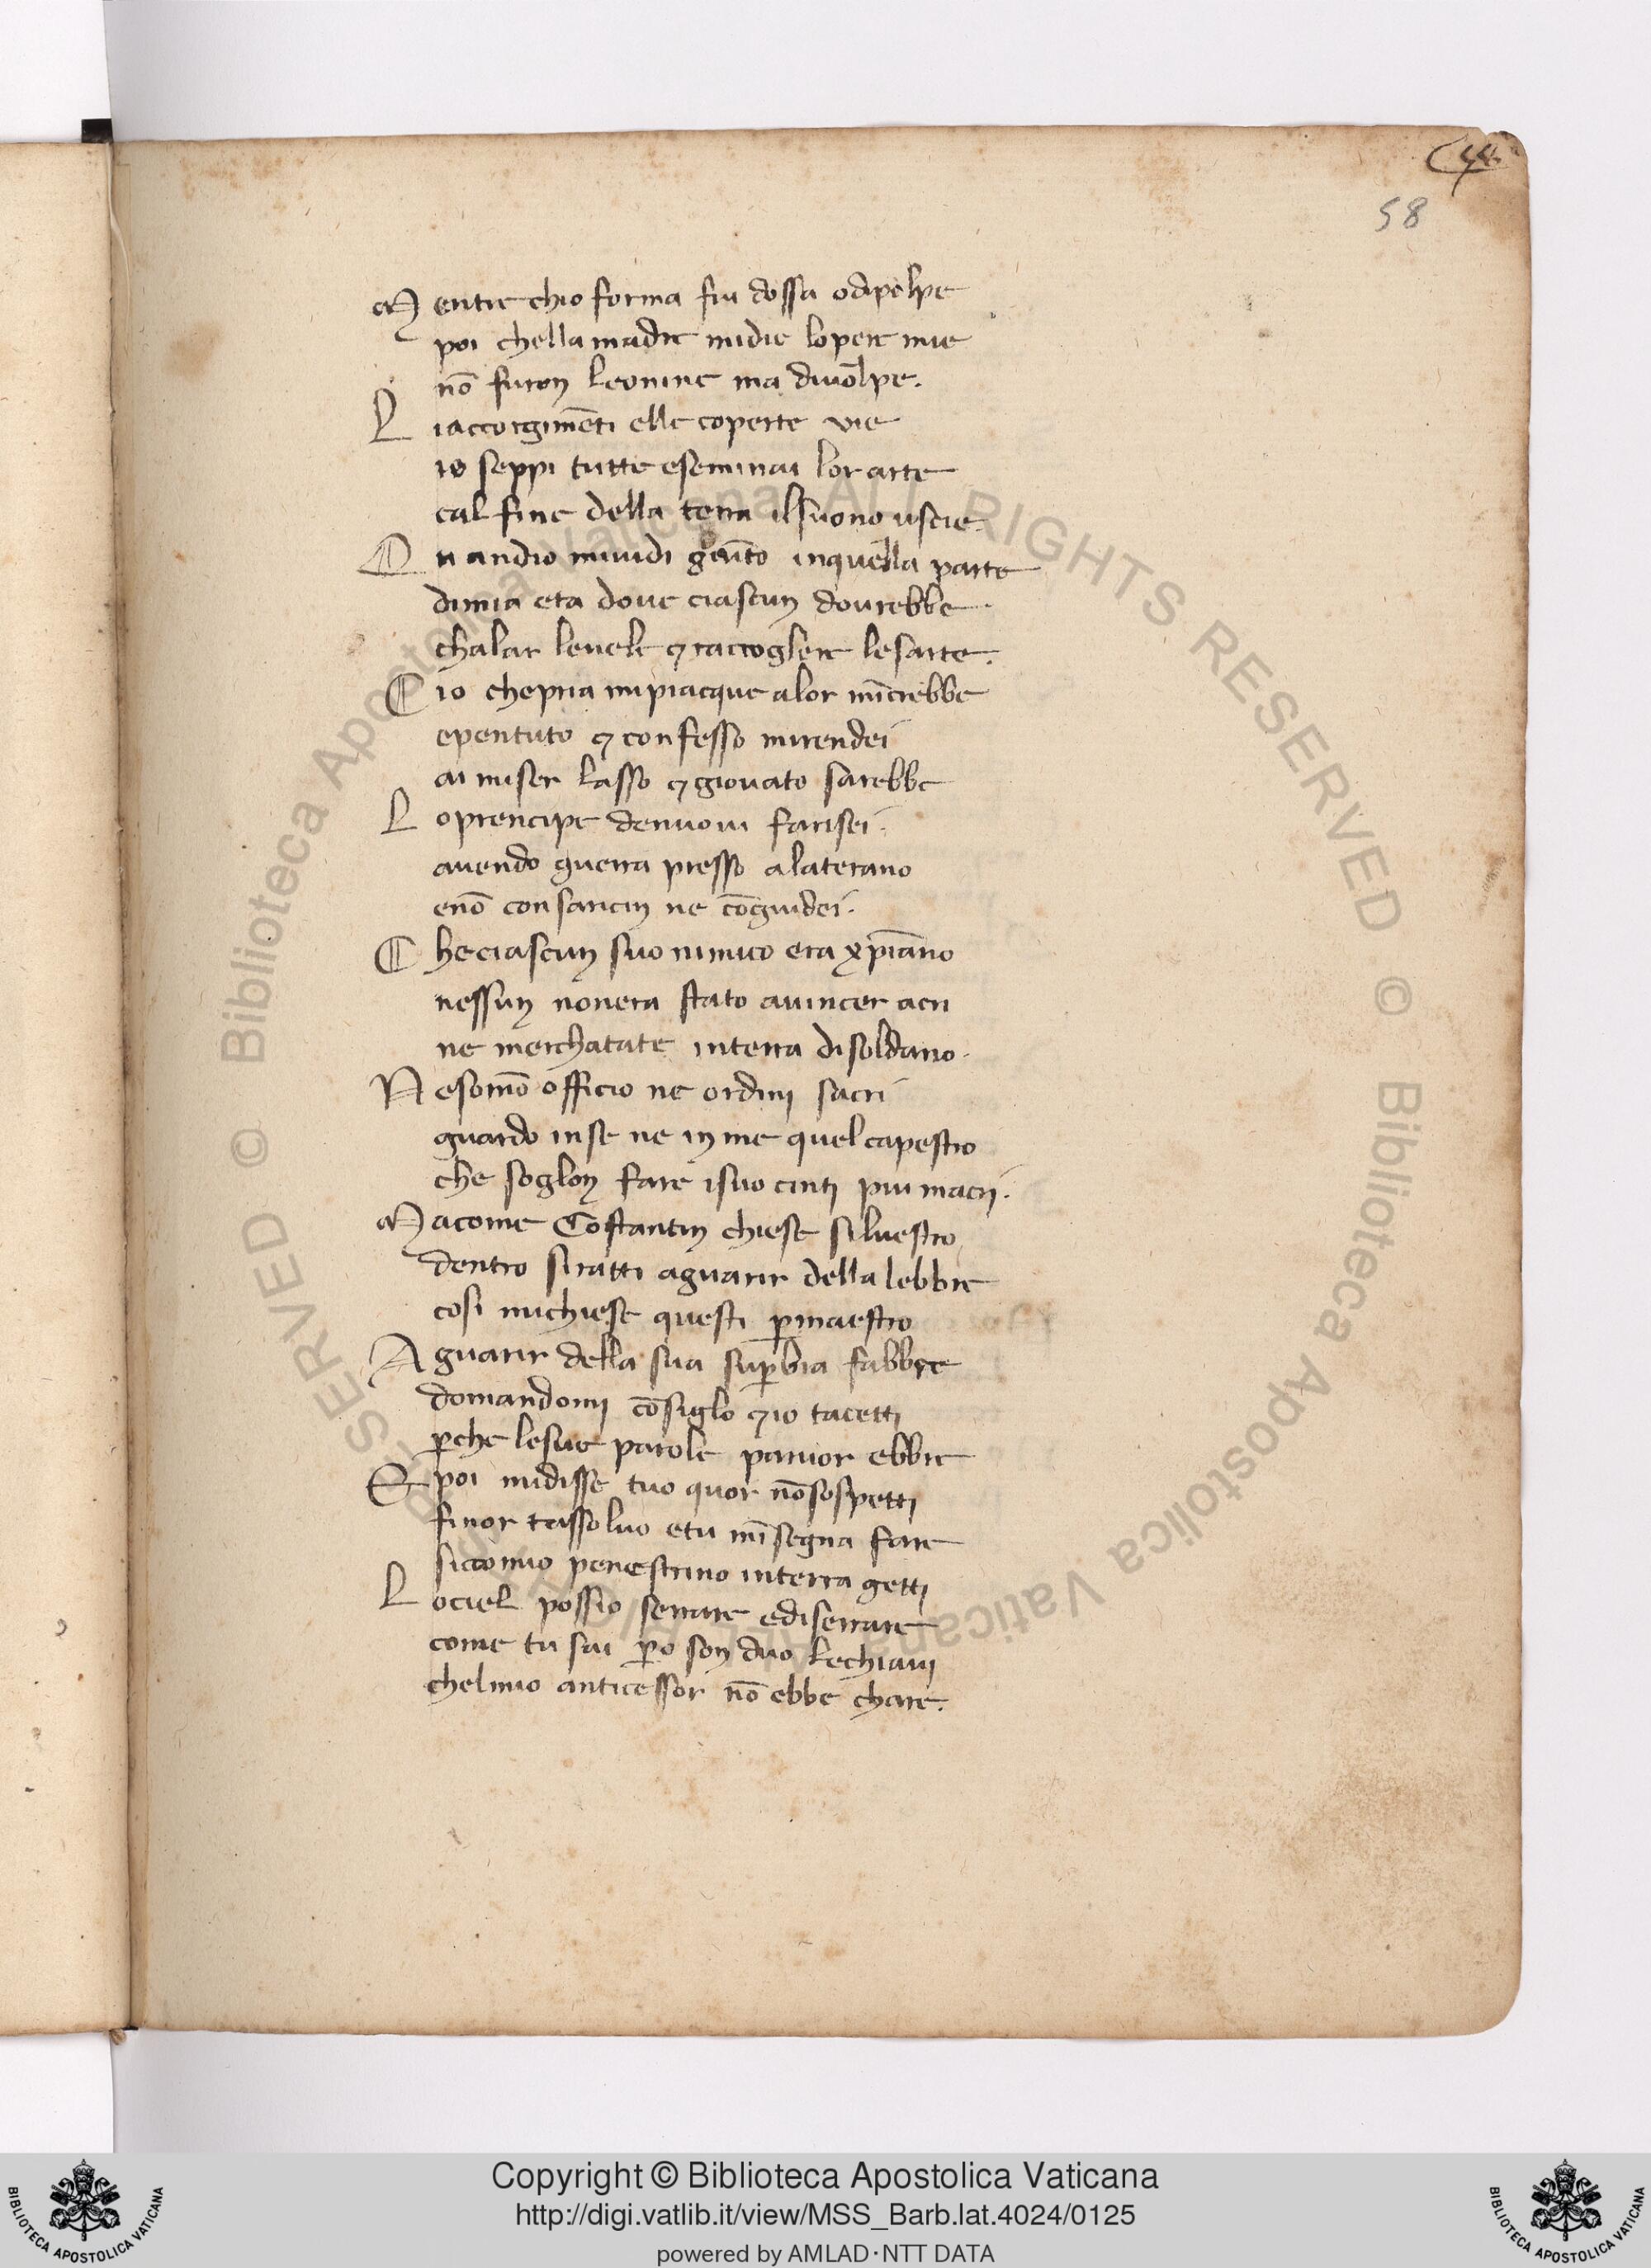 58
Mentre chio forma fui dossa odipolpe
poi chella madre midie lopere mie
nō furon leonine ma diuolpe.
Liaccorgimēti elle coperte vie
io seppi tutte esemınai lor arte
cal fine della terra ilsuono uscie
Quandio miuidi giūto inquella parte
dimia eta doue ciascun dourebbe
chalar leuele ⁊ raccoglere lesarte.
Cio chepria mipiacque alor mīcrebbe
epentuto ⁊ confesso mirendei
ai miser lasso ⁊ giouato sarebbe
Loprencipe denuoui farisei.
auendo guerra presso alaterano
enō con saracin ne cōgiudei.
Checiascun suo nimico era xp̄iano
nessun nonera stato auincer acri
ne merchatate interra disoldano.
Nesomō officio ne ordini sacri
guardo inse ne in me quel capestro
che soglon fare isuo cinti piu macri.
Macome Costantin chiese siluestro
dentro siratti aguarir della lebbre
cosi michiese questi ꝑmaestro
Aguarir della sua suꝑbia fabbre
domandomi cōsiglo ⁊io tacetti
ꝑche lesue parole paruor ebbre
E poi midisse tuo quor nōsospetti
finor tassoluo etu mīsegna fare
siccomio penestrino interra getti
Lociel possio serrare ediserrare
come tu sai ꝑo son duo lechiaui
chelmio anticessor nō ebbe chare.
Copyright © Biblioteca Apostolica Vaticana
http://digi.vatlib.it/view/MSS_Barb.lat.4024/0125
powered by AMLAD·NTT DATA
BIBLIOTECA APOSTOLICA VATICANA
BIBLIOTECA APOSTOLICA VATICANA
© Biblioteca Apostolica Vaticana ALL RIGHTS RESERVED © Biblioteca Apostolica Vaticana ALL RIGHTS RESERVED